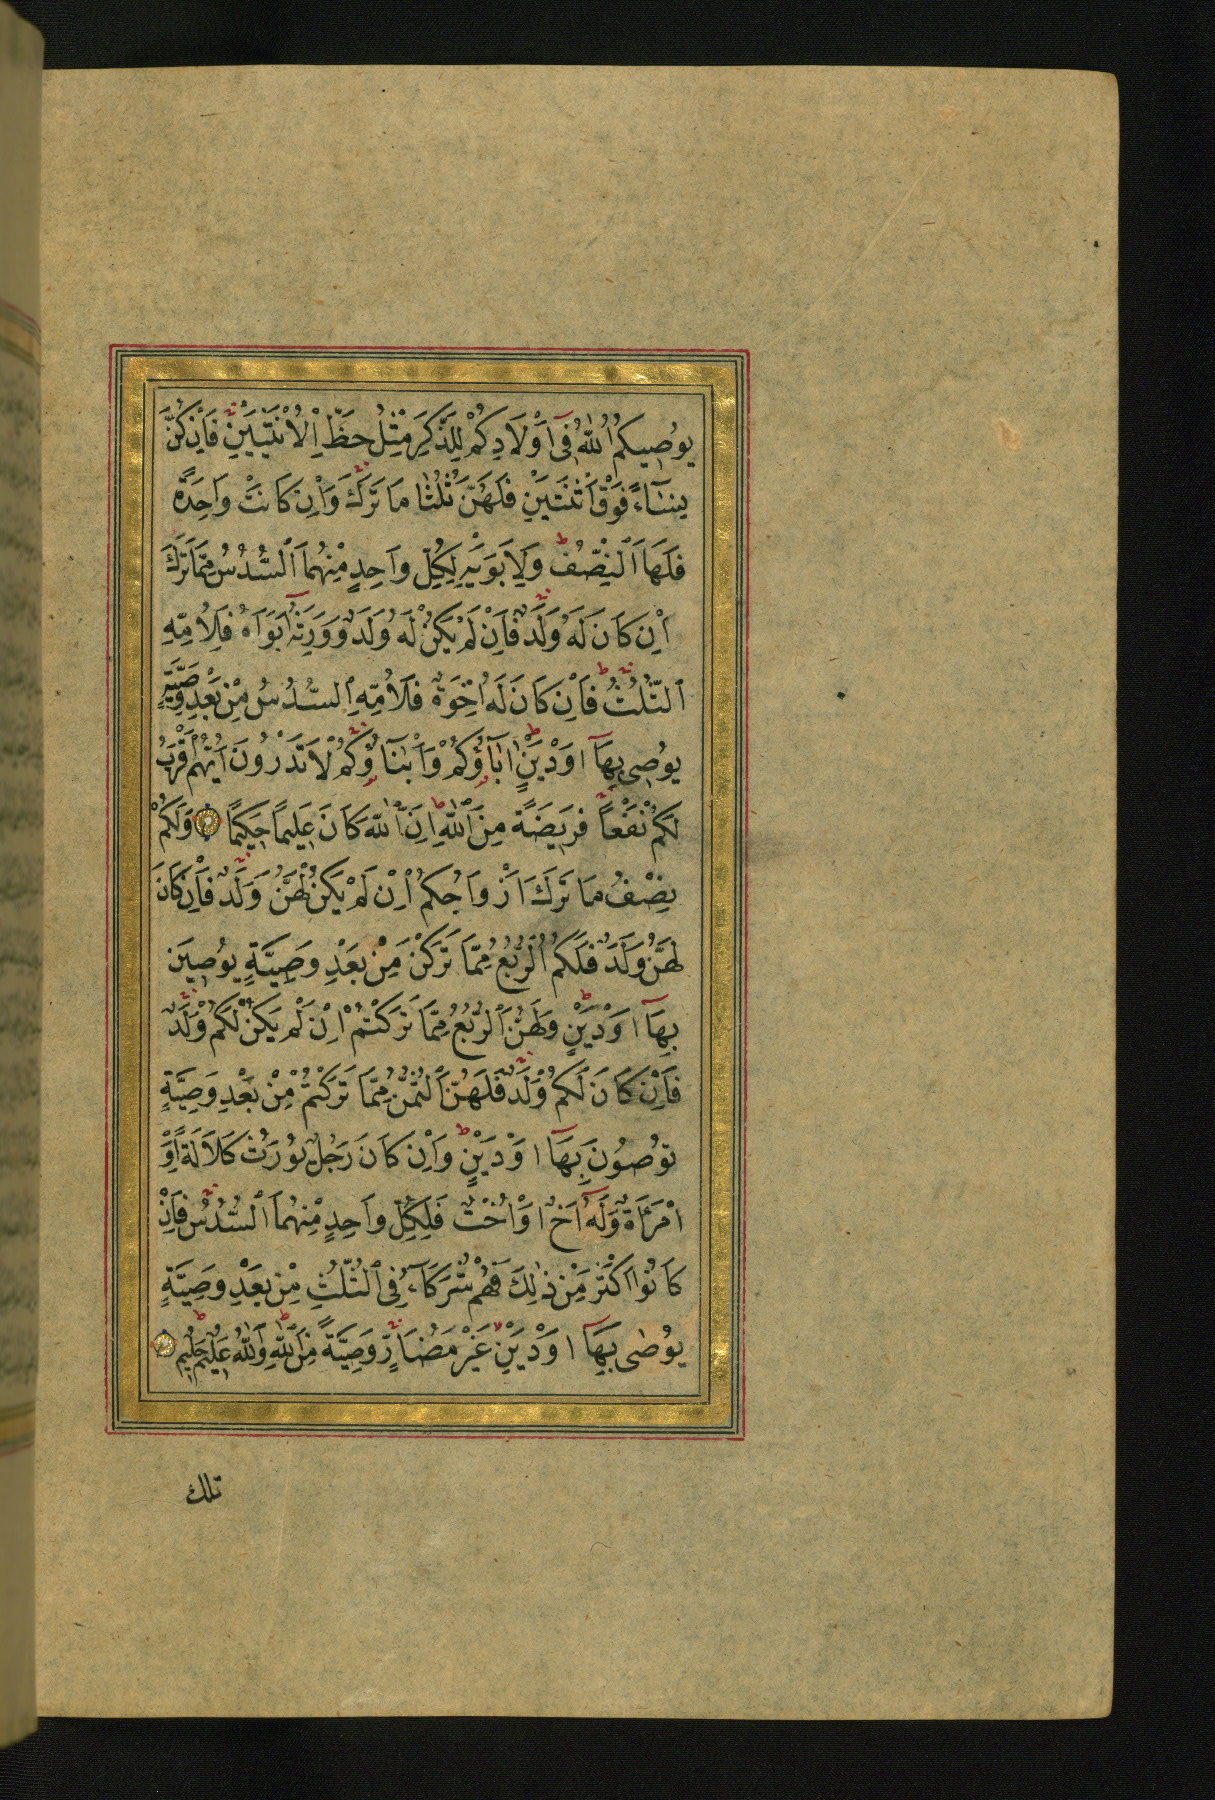 يُوصِيكُمُ اللّٰهُ فِىٓ اَوْلَادِكُمْ لِلذَّكَرِ مِثْلُ حَظِّ الْاُنْثَيَيْنِ فَاِنْ كُنَّ
نِسَآءً فَوْقَ اثْنَتَيْنِ فَلَهُنَّ ثُلُثَا مَا تَرَكَ وَاِنْ كَانَتْ وَاحِدَةً
فَلَهَا النِّصْفُ وَلِاَبَوَيْهِ لِكُلِّ وَاحِدٍ مِنْهُمَا السُّدُسُ مِمَّا تَرَكَ
اِنْ كَانَ لَهُ وَلَدٌ فَاِنْ لَمْ يَكُنْ لَهُ وَلَدٌ وَوَرِثَهُٓ اَبَوَاهُ فَلِاُمِّهِ
الثُّلُثُ فَاِنْ كَانَ لَهُ اِخْوَةٌ فَلِاُمِّهِ السُّدُسُ مِنْ بَعْدِ وَصِيَّةٍ
يُوصِى بِهَآ اَوْ دَيْنٍ اٰبَآؤُكُمْ وَاَبْنَآؤُكُمْ لَا تَدْرُونَ اَيُّهُمْ اَقْرَبُ
لَكُمْ نَفْعًا فَرِيضَةً مِنَ اللّٰهِ اِنَّ اللّٰهَ كَانَ عَلِيمًا حَكِيمًا وَلَكُمْ
نِصْفُ مَا تَرَكَ اَزْوَاجُكُمْ اِنْ لَمْ يَكُنْ لَهُنَّ وَلَدٌ فَاِنْ كَانَ
لَهُنَّ وَلَدٌ فَلَكُمُ الرُّبُعُ مِمَّا تَرَكْنَ مِنْ بَعْدِ وَصِيَّةٍ يُوصِينَ
بِهَآ اَوْ دَيْنٍ وَلَهُنَّ الرُّبُعُ مِمَّا تَرَكْتُمْ اِنْ لَمْ يَكُنْ لَكُمْ وَلَدٌ
فَاِنْ كَانَ لَكُمْ وَلَدٌ فَلَهُنَّ الثُّمُنُ مِمَّا تَرَكْتُمْ مِنْ بَعْدِ وَصِيَّةٍ
تُوصُونَ بِهَآ اَوْ دَيْنٍ وَاِنْ كَانَ رَجُلٌ يُورَثُ كَلَالَةً اَوِ
امْرَاَةٌ وَلَهُٓ اَخٌ اَوْ اُخْتٌ فَلِكُلِّ وَاحِدٍ مِنْهُمَا السُّدُسُ فَاِنْ
كَانُوا اَكْثَرَ مِنْ ذٰلِكَ فَهُمْ شُرَكَآءُ فِى الثُّلُثِ مِنْ بَعْدِ وَصِيَّةٍ
يُوصٰى بِهَآ اَوْ دَيْنٍ غَيْرَ مُضَآرٍّ وَصِيَّةً مِنَ اللّٰهِ وَاللّٰهُ عَلِيمٌ حَلِيمٌ
تلك